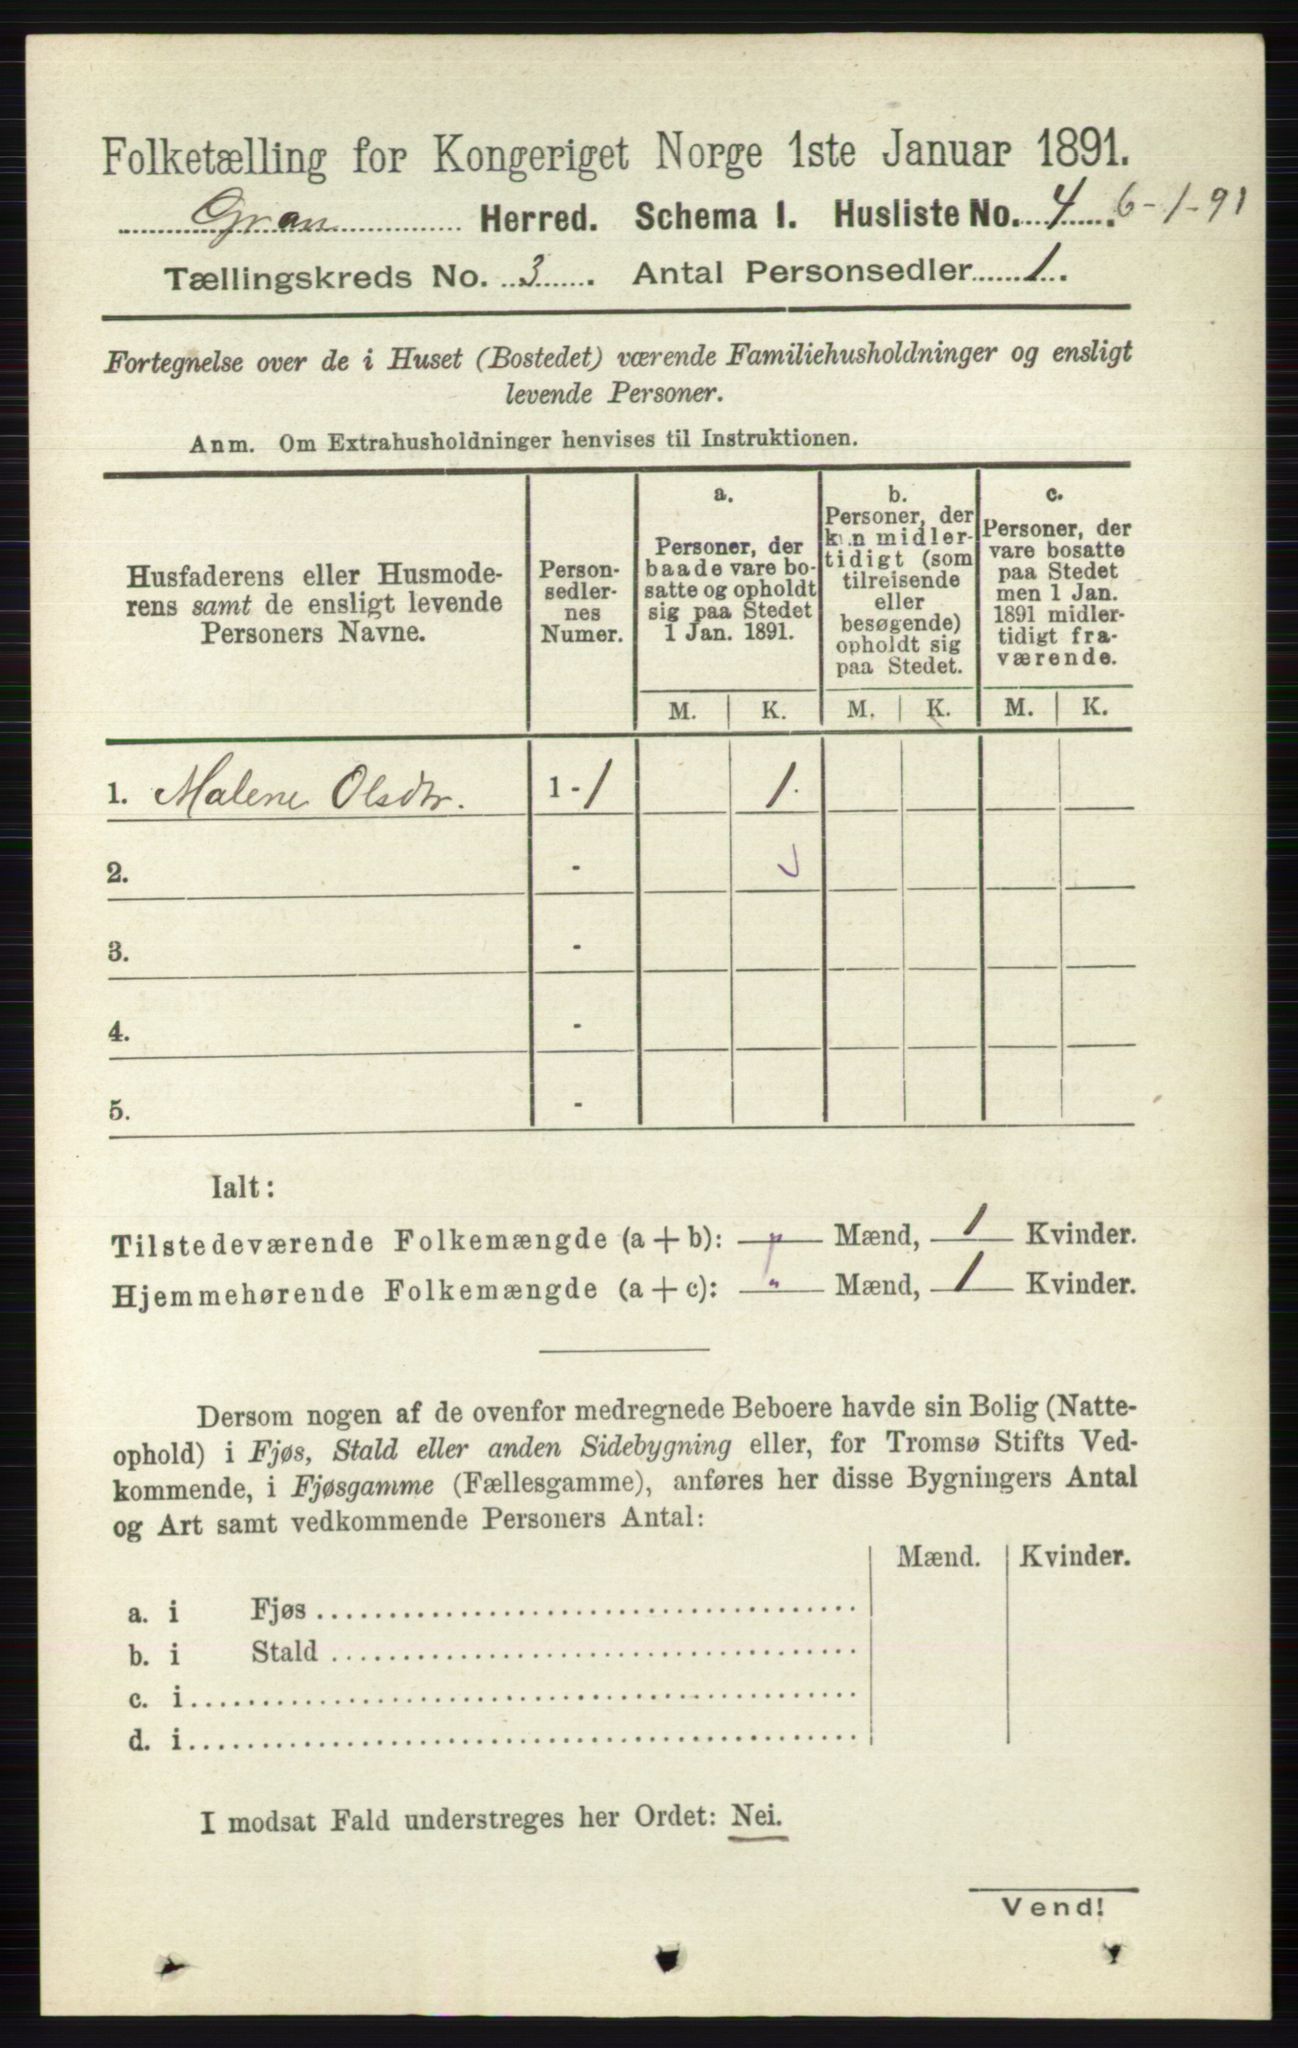 Folketælling for Kongeriget Norge 1ste Januar 1891.
Gran Herred. Schema I. Husliste No. 4. 6-1-91
Tællingskreds No. 3. Antal Personsedler 1.
Fortegnelse over de i Huset (Bostedet) værende Familiehusholdninger og ensligt
levende Personer.
Anm. Om Extrahusholdninger henvises til Instruktionen.
Husfaderens eller Husmode-
rens samt de ensligt levende
Personers Navne.
Person-
sedler-
nes
Numer.
a.
Personer, der
baade vare bo-
satte og opholdt
sig paa Stedet
1 Jan. 1891.
b.
Personer, der
kun midler-
tidigt (som
tilreisende
eller
besøgende)
opholdt sig
paa Stedet.
c.
Personer, der
vare bosatte
paa Stedet
men 1 Jan.
1891 midler-
tidigt fra-
værende.
M. K. M. K. M. K.
1. Malene Olsdtr. 1 - 1 1.
2. -
3. -
4. -
5. -
Ialt:
Tilstedeværende Folkemængde (a + b): Mænd, 1 Kvinder.
Hjemmehørende Folkemængde (a + c): " Mænd, 1 Kvinder.
Dersom nogen af de ovenfor medregnede Beboere havde sin Bolig (Natte-
ophold) i Fjøs, Stald eller anden Sidebygning eller, for Tromsø Stifts Ved-
kommende, i Fjøsgamme (Fællesgamme), anføres her disse Bygningers Antal
og Art samt vedkommende Personers Antal:
Mænd. Kvinder.
a. i Fjøs
b. i Stald
c. i
d. i
I modsat Fald understreges her Ordet: Nei.
Vend!